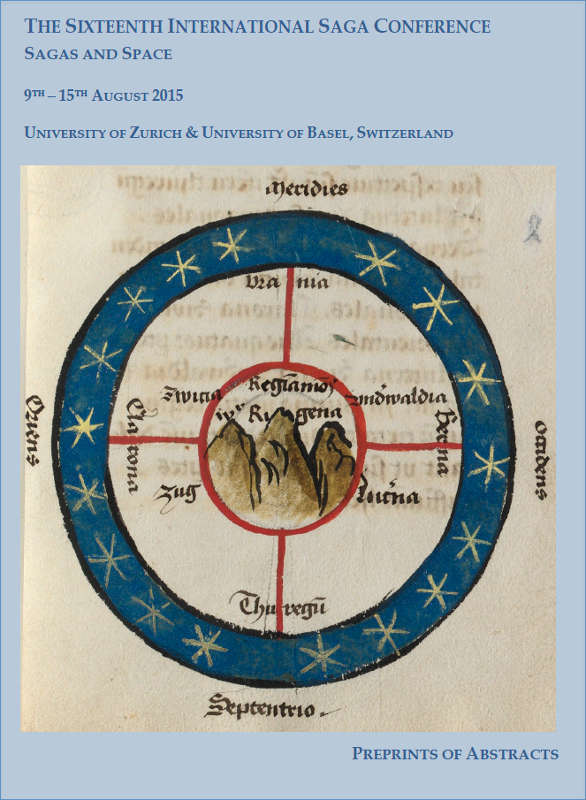 THE SIXTEENTH INTERNATIONAL SAGA CONFERENCE
SAGAS AND SPACE
9TH – 15TH AUGUST 2015
UNIVERSITY OF ZURICH & UNIVERSITY OF BASEL, SWITZERLAND
Meridies
Vra nia
Switia
Regiamōs
Vndʼwaldia
Rigena
Oriens
Clarona
Berona
Occidens
Zug
Thuregū
Septentrio.
PREPRINTS OF ABSTRACTS